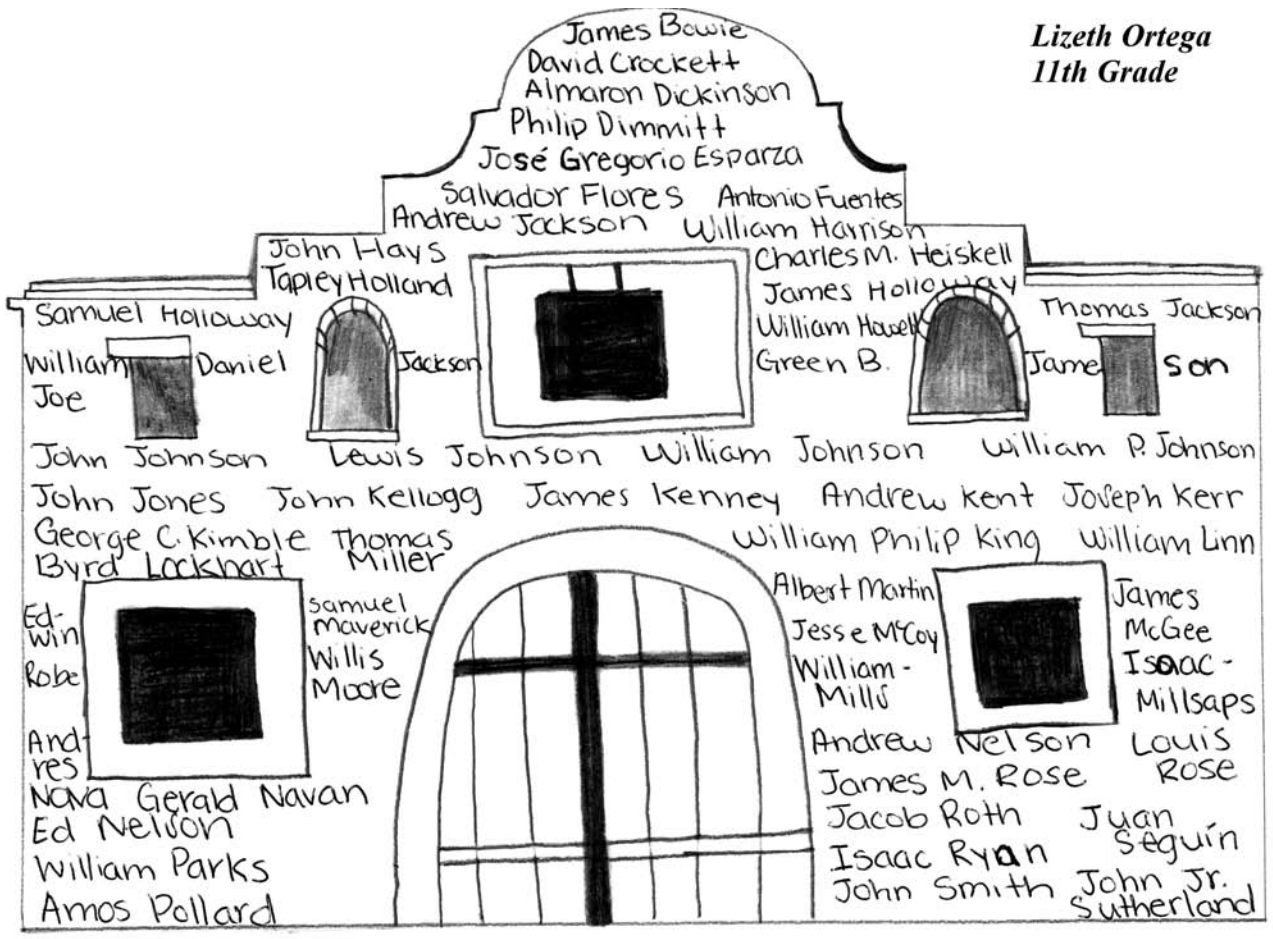 Lizeth Ortega
11th Grade
James Bowie
David Crockett
Almaron Dickinson
Philip Dimmitt
José Gregorio Esparza
Salvador Flores Antonio Fuentes
Andrew Jackson William Harrison
John Hays Charles M. Heiskell
Tapley Holland James Holloway
Samuel Holloway William Howell Thomas Jackson
William Daniel Jackson Green B. Jame son
Joe
John Johnson Lewis Johnson William Johnson William P. Johnson
John Jones John Kellogg James Kenney Andrew Kent Joseph Kerr
George C. Kimble Thomas William Philip King William Linn
Byrd Lockhart Miller
Ed-
win
Robe
And-
res
Samuel
Maverick
Willis
Moore
Albert Martin
Jesse McCoy
William-
Mills
James
McGee
Isaac-
Millsaps
Nava Gerald Navan
Ed Nelson
William Parks
Amos Pollard
Andrew Nelson Louis
James M. Rose Rose
Jacob Roth Juan
Isaac Ryan Seguín
John Smith John Jr.
Sutherland